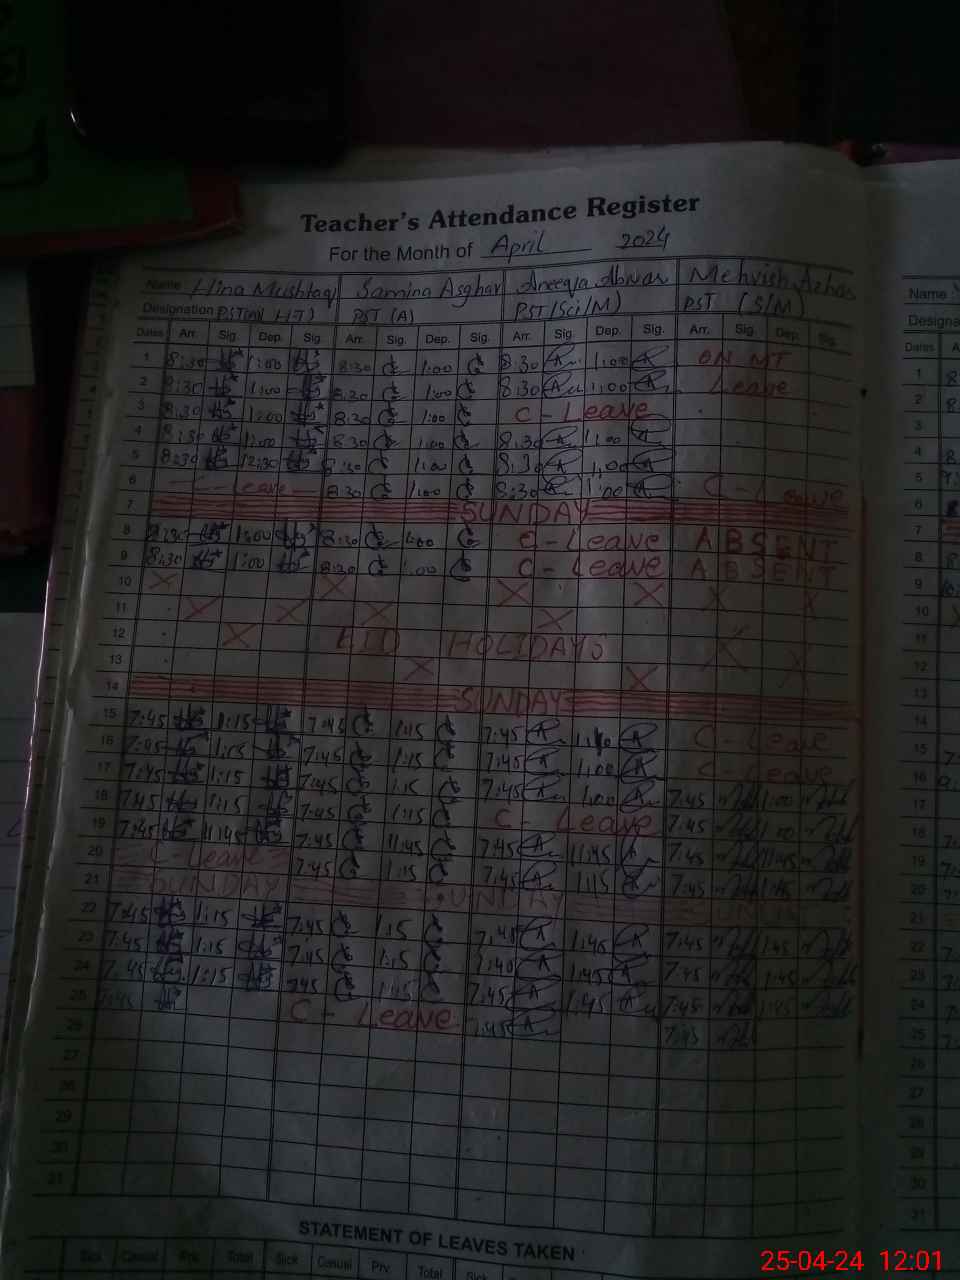 Teacher's Attendance Register
For the Month of April 2024
Name Hina Mushtaq Samina Asghar Aneeqa Abrar Mehvish Azhar
Designation PST (A) PST (Sci/M) PST (S/M)
Dates Arr. Sig. Dep. Sig. Arr. Sig. Dep. Sig. Arr. Sig. Dep. Sig. Arr. Sig. Dep. Sig.
1 8:30 1:00 8:30 1:00 8:30 1:00 ON MT
2 8:30 1:00 8:30 1:00 8:30 1:00 Leave
3 8:30 1:00 8:30 1:00 C - Leave
4 8:30 1:00 8:30 1:00 8:30 1:00
5 8:30 12:30 8:30 1:00 8:30 1:00
6 C - Leave 8:30 1:00 8:30 1:00 C - Leave
7 SUNDAY
8 8:30 1:00 8:30 1:00 C - Leave ABSENT
9 8:30 1:00 8:30 1:00 C - Leave ABSENT
10
11
12 EID HOLIDAYS
13
14 SUNDAY
15 7:45 1:15 7:45 1:15 7:45 C - Leave
16 7:45 1:15 7:45 1:15 7:45 1:00 C - Leave
17 7:45 1:15 7:45 1:15 7:45 1:00 7:45 1:00
18 7:45 1:15 7:45 1:15 C - Leave 7:45 1:00
19 7:45 11:45 7:45 11:45 7:45 11:45 7:45 11:45
20 C - Leave 7:45 1:15 7:45 1:15 7:45
21 SUNDAY SUNDAY SUNDAY
22 7:45 1:15 7:45 1:15 1:45 7:45 1:45
23 7:45 1:15 7:45 1:15 7:40 1:45 7:45 1:45
24 7:45 1:15 7:45 1:15 7:45 1:45 7:45 1:45
25 7:45 C - Leave 7:45 7:45
26
27
28
29
30
31
STATEMENT OF LEAVES TAKEN
Sick Casual Priv. Total Sick Casual Prv. Total Sick
Name
Designa
Dates
1 8
2 8
3
4 8
5
6 8
7
8 8
9
10
11
12
13
14
15
16
17
18
19
20
21
22
23
24
25
26
27
28
29
30
31
25-04-24 12:01